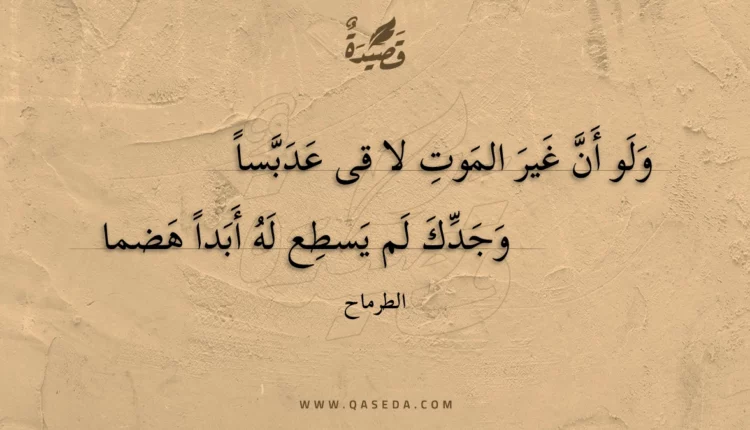 قَصِيْدَةٌ
وَلَو أَنَّ غَيرَ المَوتِ لا قى عَدَبَّساً
وَجَدِّكَ لَم يَسطِع لَهُ أَبَداً هَضما
الطرماح
WWW.QASEDA.COM